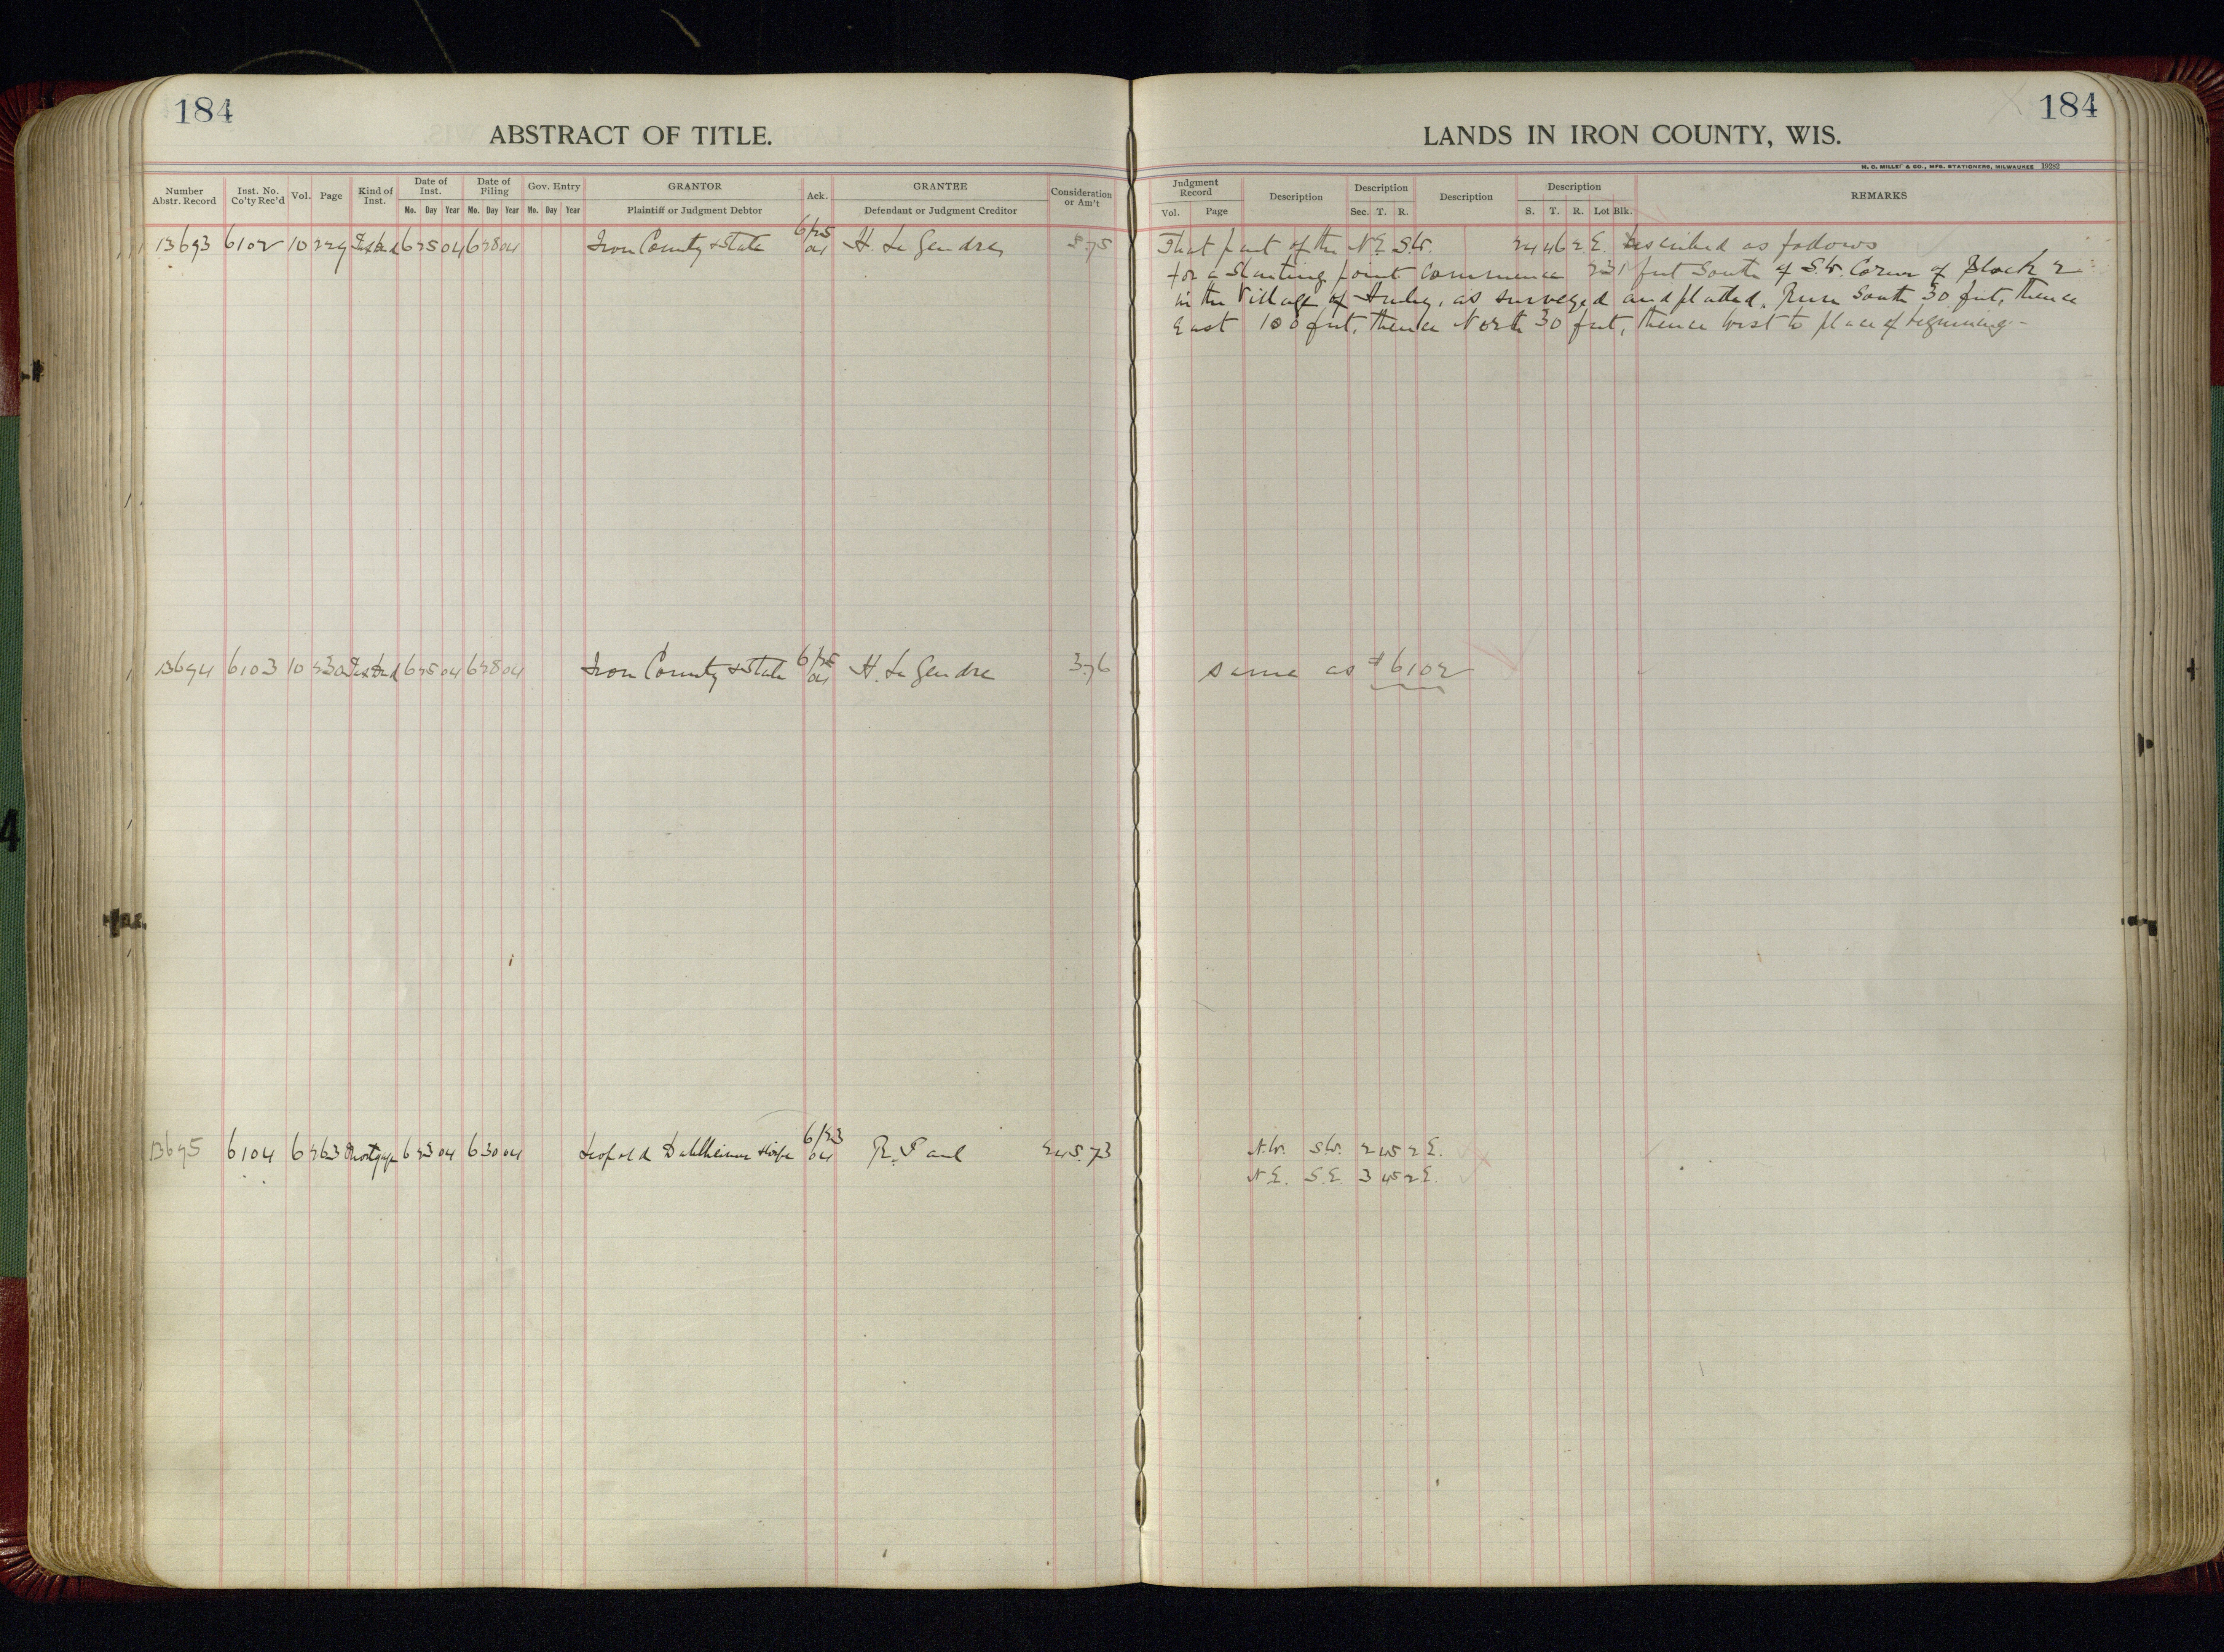 184
184
ABSTRACT OF TITLE.
LANDS IN IRON COUNTY, WIS.
M. C. MILLER & CO., MFG. STATIONERS, MILWAUKEE 19282
Number Abstr. Record
Inst. No. Co'ty Rec'd
Vol.
Page
Kind of Inst.
Date of Inst.
Mo. Day Year
Date of Filing
Mo. Day Year
Gov. Entry
Mo. Day Year
GRANTOR
Plaintiff or Judgment Debtor
Ack.
GRANTEE
Defendant or Judgment Creditor
Consideration or Am't
Judgment Record
Vol. Page
Description
Description
Sec. T. R.
Description
Description
S. T. R. Lot Blk.
REMARKS
13693 6102 10 229 Tax Deed 6 25 04 6 28 04 Iron County & State 6/25 04 H. Le Gendre 3.75 That part of the N.E. S.W. 24 46 2 E. described as follows
for a starting point commence 231 feet South of S.W. Corner of Block 2
in the Village of Hurley, as surveyed and platted. Run South 30 feet, thence
East 100 feet, thence North 30 feet, thence West to place of beginning.-
13694 6103 10 230 Tax Deed 6 25 04 6 28 04 Iron County & State 6/25 04 H. Le Gendre 3.76 same as # 6102
13695 6104 6 263 Mortgage 6 23 04 6 30 04 Leopold Dahlheimer & wife 6/23 04 R. Paul 245.73 N.W. S.W. 2 45 2 E.
N.E. S.E. 3 45 2 E.
4